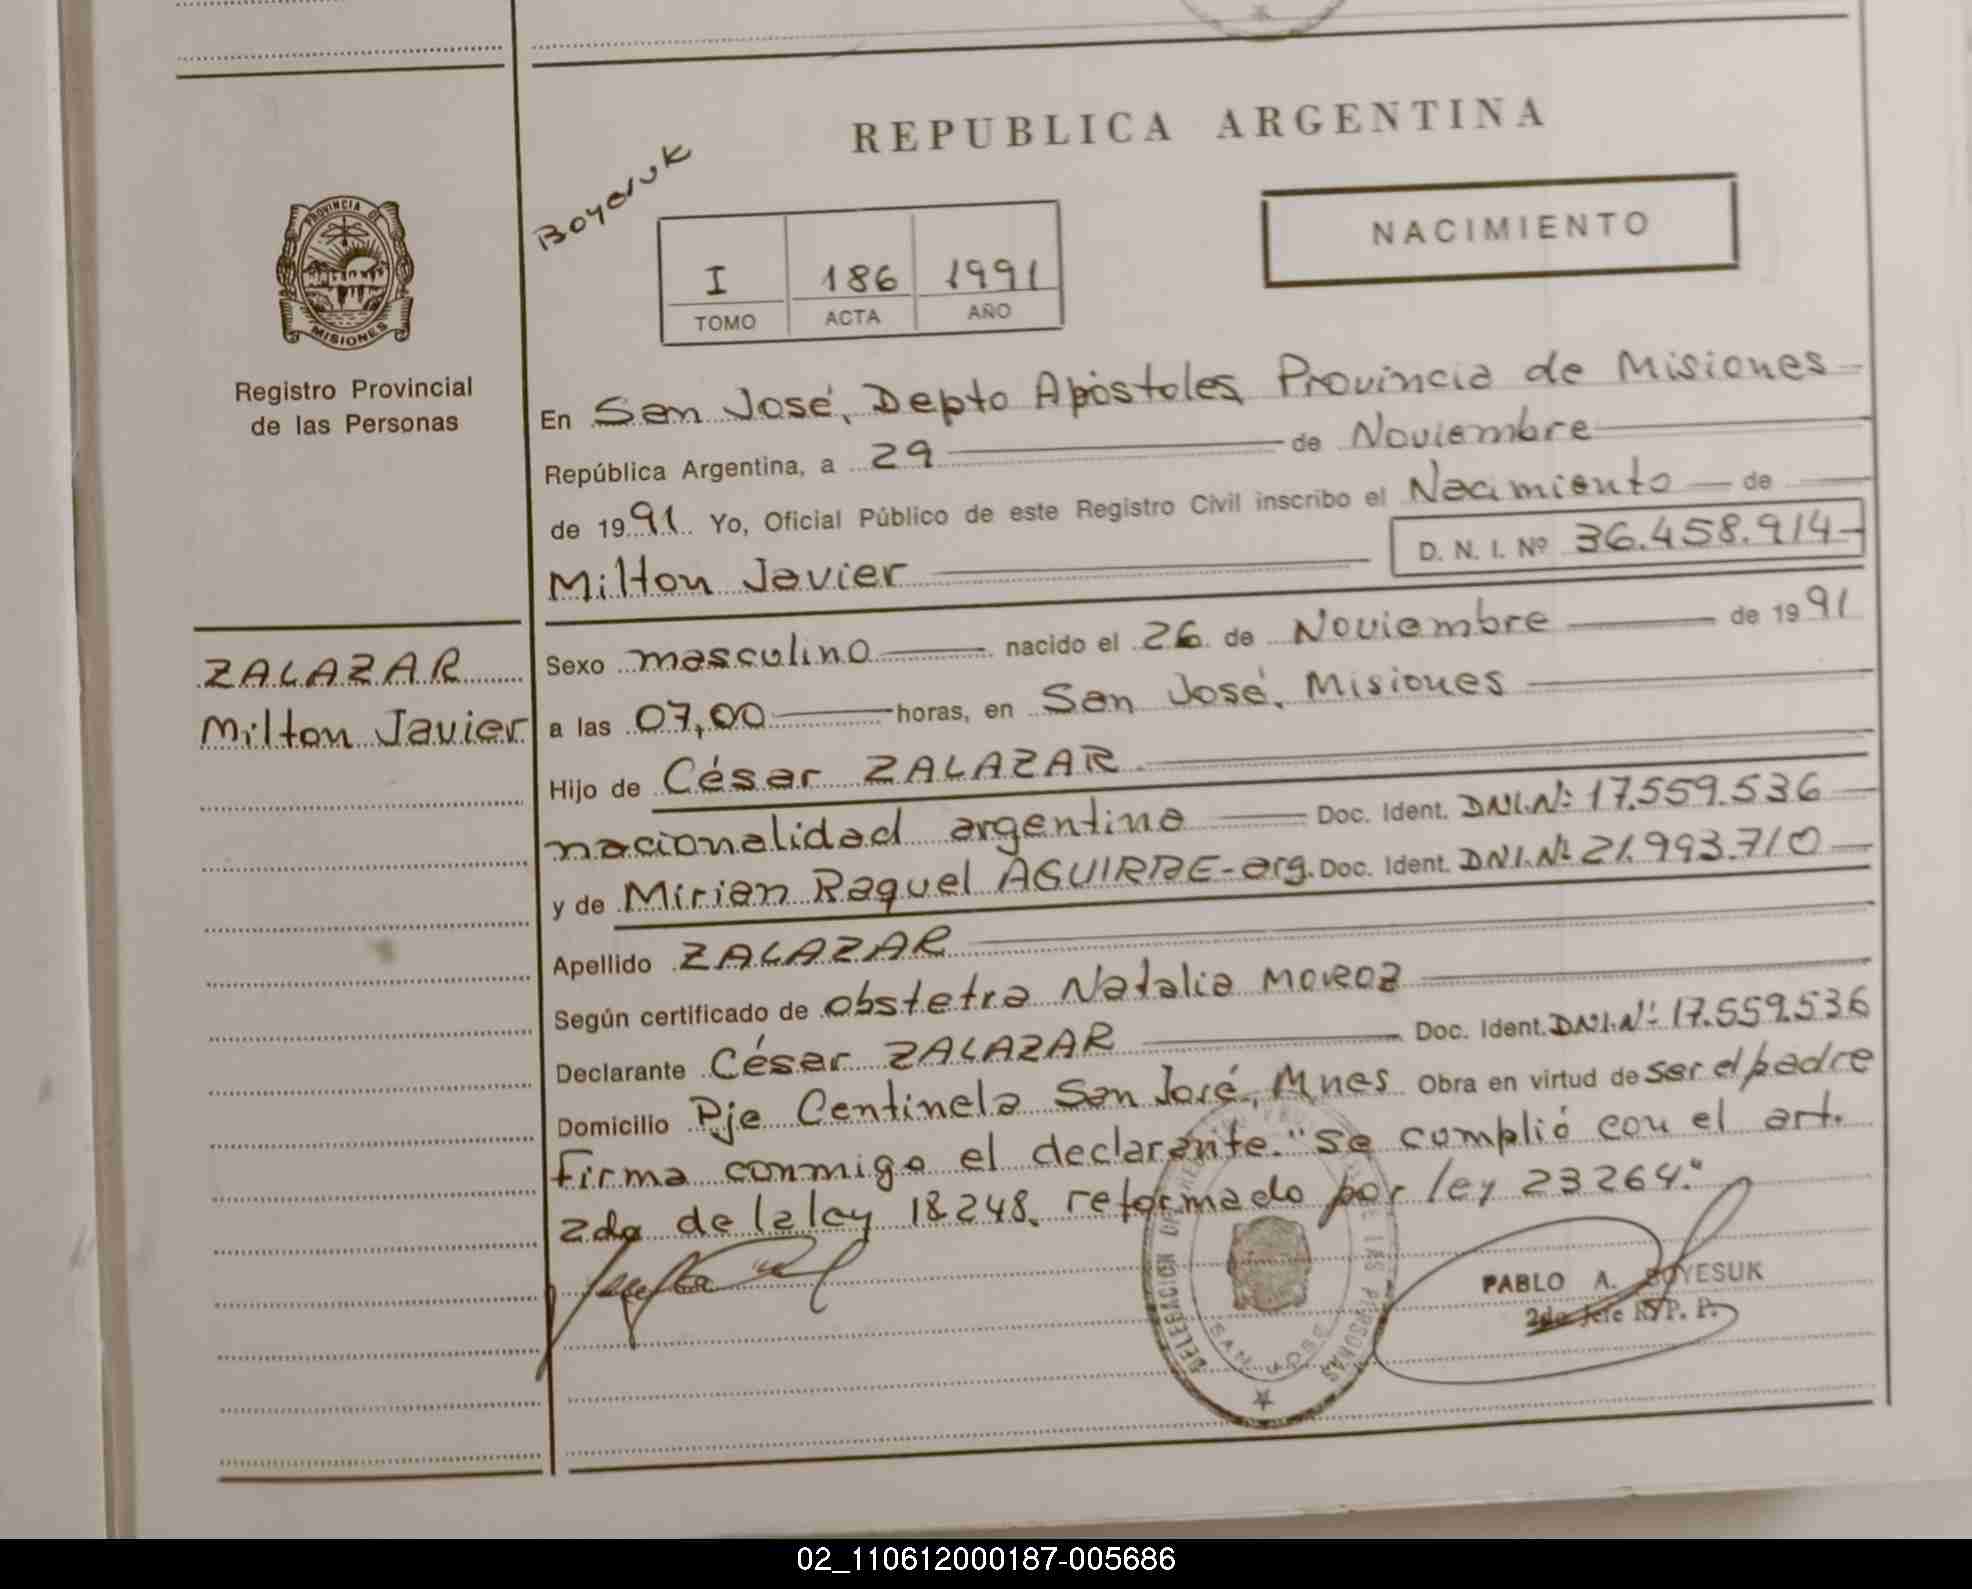 REPUBLICA ARGENTINA
NACIMIENTO
I 186 1991
TOMO ACTA AÑO
PROVINCIA DE
MISIONES
Registro Provincial
de las Personas
ZALAZAR
Milton Javier
En San José, Depto Apóstoles, Provincia de Misiones
República Argentina, a 29 de Noviembre
de 1991 Yo, Oficial Público de este Registro Civil inscribo el Nacimiento de
Milton Javier D. N. I. Nº 36.458.914
Sexo masculino nacido el 26 de Noviembre de 1991
a las 07,00 horas, en San José, Misiones
Hijo de César ZALAZAR
nacionalidad argentina Doc. Ident. DNI.Nº 17.559.536
y de Mirian Raquel AGUIRRE-arg. Doc. Ident. DNI.Nº 21.993.710
Apellido ZALAZAR
Según certificado de obstetra Natalia Moroz
Declarante César ZALAZAR Doc. Ident. DNI.Nº 17.559.536
Domicilio Pje Centinela San José, Mnes Obra en virtud de ser el padre
Firma conmigo el declarante. "Se cumplió con el art.
2do de la ley 18248, reformado por ley 23264."
DELEGACION DEL REGISTRO DE LAS PERSONAS
SAN JOSE
PABLO A. BOYESUK
2do Jefe R. P. P.
02_110612000187-005686